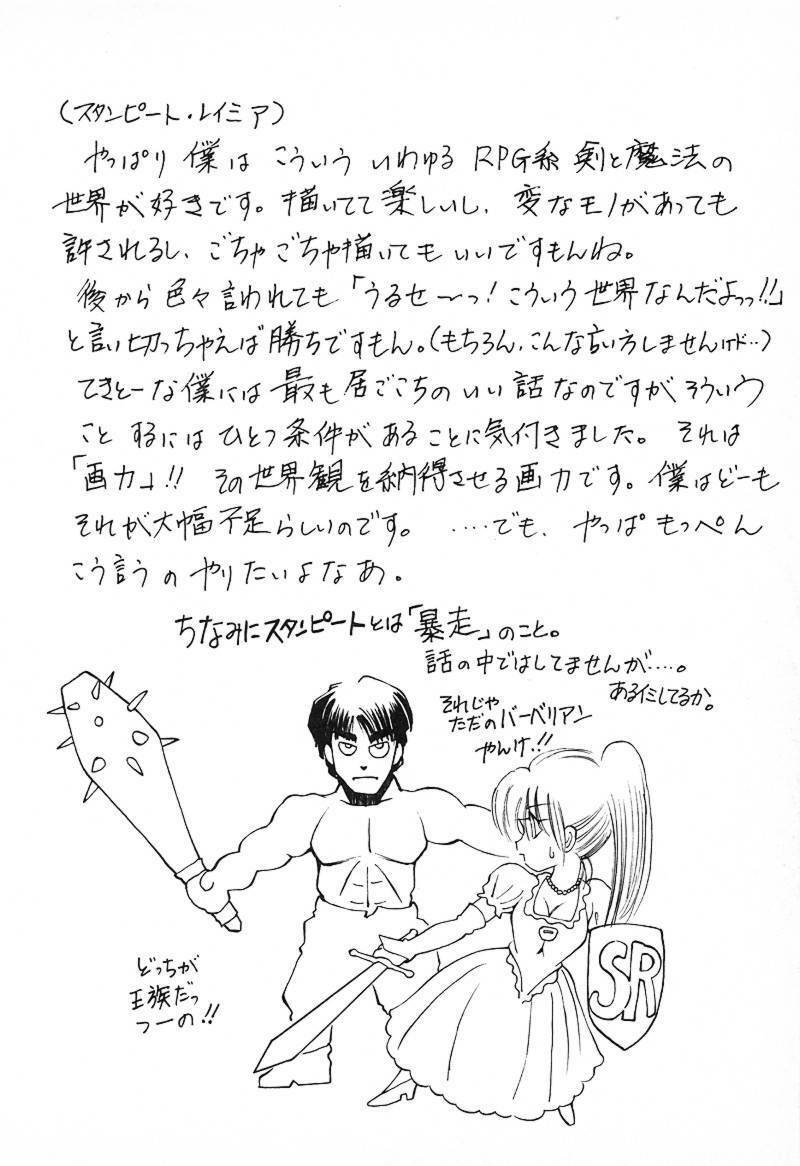 (スタンピート・レイミア)
やっぱり僕はこういういわゆるRPG系剣と魔法の
世界が好きです。描いてて楽しいし、変なモノがあっても
許されるし、ごちゃごちゃ描いてもいいですもんね。
後から色々言われても「うるせ〜っ!こういう世界なんだよっっ!!」
と言い切っちゃえば勝ちですもん。(もちろん、こんな言い方しませんけド‥)
てきとーな僕には最も居ごこちのいい話なのですがそういう
ことするにはひとつ条件があることに気付きました。それは
「画力」!!その世界観を納得させる画力です。僕はどーも
それが大幅不足らしいのです。‥‥でも、やっぱもっぺん
こう言うのやりたいよなあ。
ちなみにスタンピートとは「暴走」のこと。
話の中ではしてませんが‥‥。
ある イミしてるか。
それじゃ
ただのバーベリアン
やんけ!!
どっちが
王族だっ
つーの!!
SR